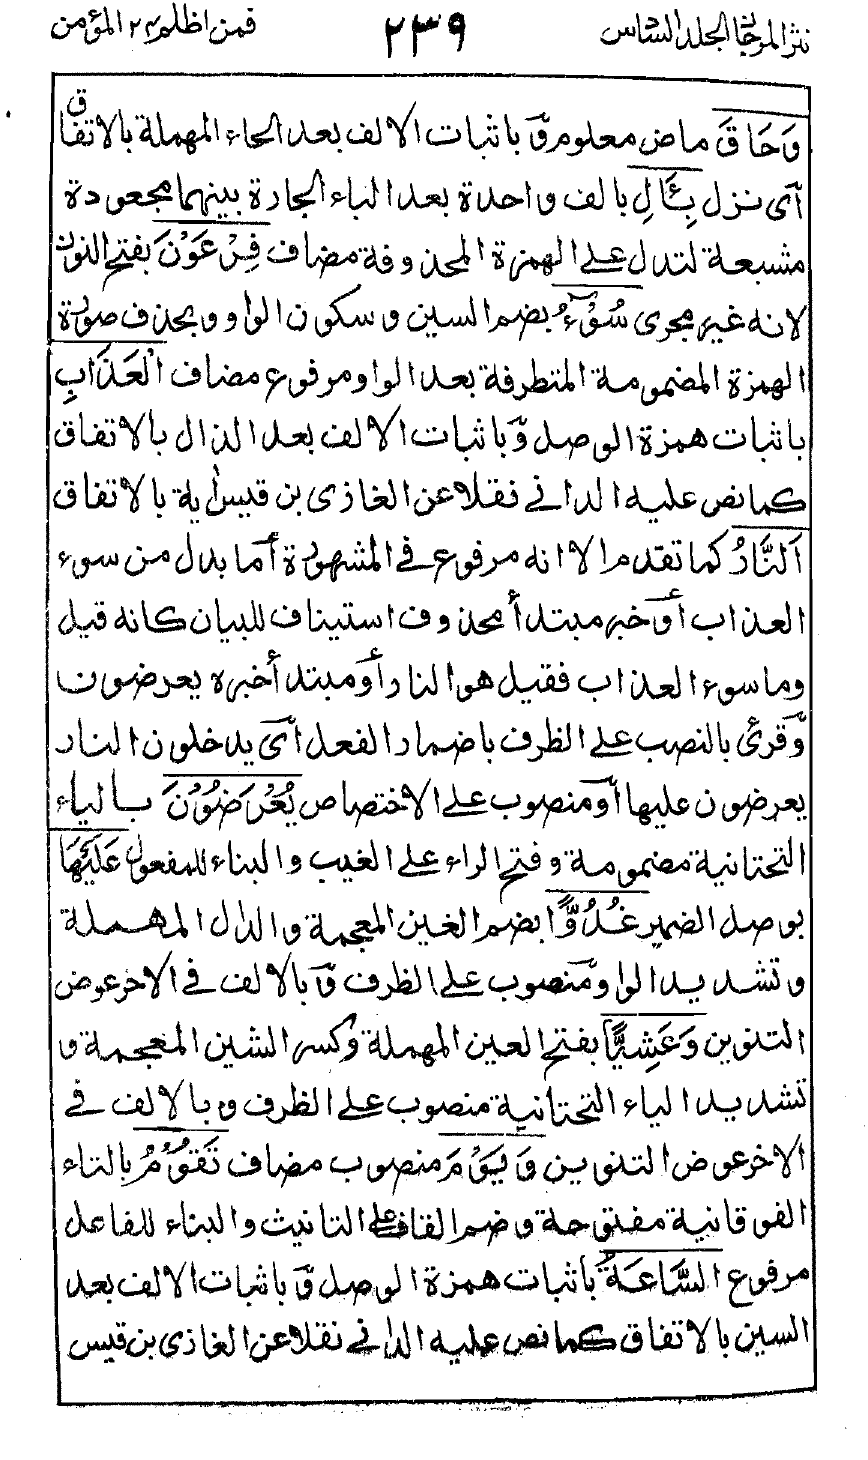 نثر المرجان الجلد السادس ٢٣٩ فمن اظلم ٢٤ المؤمن
وَحَاقَ ماض معلوم وّ باثبات الالف بعد الحاء المهملة بالاتفاق
اَى نزل بِـَٔالِ بالف واحدة بعد الباء الجارة بينهما مجعودة
مشبعة لتدل على الهمزة المحذوفة مضاف فِرْعَوْنَ بفتح النون
لانه غير مجرى سُوْٓءُ بضم السين وسكون الواو وبحذف صورة
الهمزة المضمومة المتطرفة بعد الواو مرفوع مضاف الْعَذَابِ
باثبات همزة الوصل وّ باثبات الالف بعد الذال بالاتفاق
كما نص عليه الدانى نقلا عن الغازى بن قيس اٰية بالاتفاق
اَلنَّارُ كما تقدم الا انه مرفوع فى المشهورة أما بدل من سوء
العذاب أو خبر مبتدأ محذوف استيناف للبيان كانه قيل
وما سوء العذاب فقيل هو النار أو مبتدأ خبره يعرضون
وّ قرئ بالنصب على الظرف باضمار الفعل اَى يدخلون النار
يعرضون عليها أو منصوب على الاختصاص يُعْرَضُوْنَ بالياء
التحتانية مضمومة وفتح الراء على الغيب والبناء للمفعول عَلَيْهَا
بوصل الضمير غُدُوًّا بضم الغين المعجمة والدال المهملة
وتشديد الواو منصوب على الظرف وّ بالالف فى الاخر عوض
التنوين وَعَشِيًّا بفتح العين المهملة وكسر الشين المعجمة و
تشديد الياء التحتانية منصوب على الظرف وبالالف فى
الاخر عوض التنوين وَيَوْمَ منصوب مضاف تَقُوْمُ بالتاء
الفوقانية مفتوحة وضم القاف على التانيث والبناء للفاعل
مرفوع السَّاعَةُ باثبات همزة الوصل وّ باثبات الالف بعد
السين بالاتفاق كما نص عليه الدانى نقلا عن الغازى بن قيس